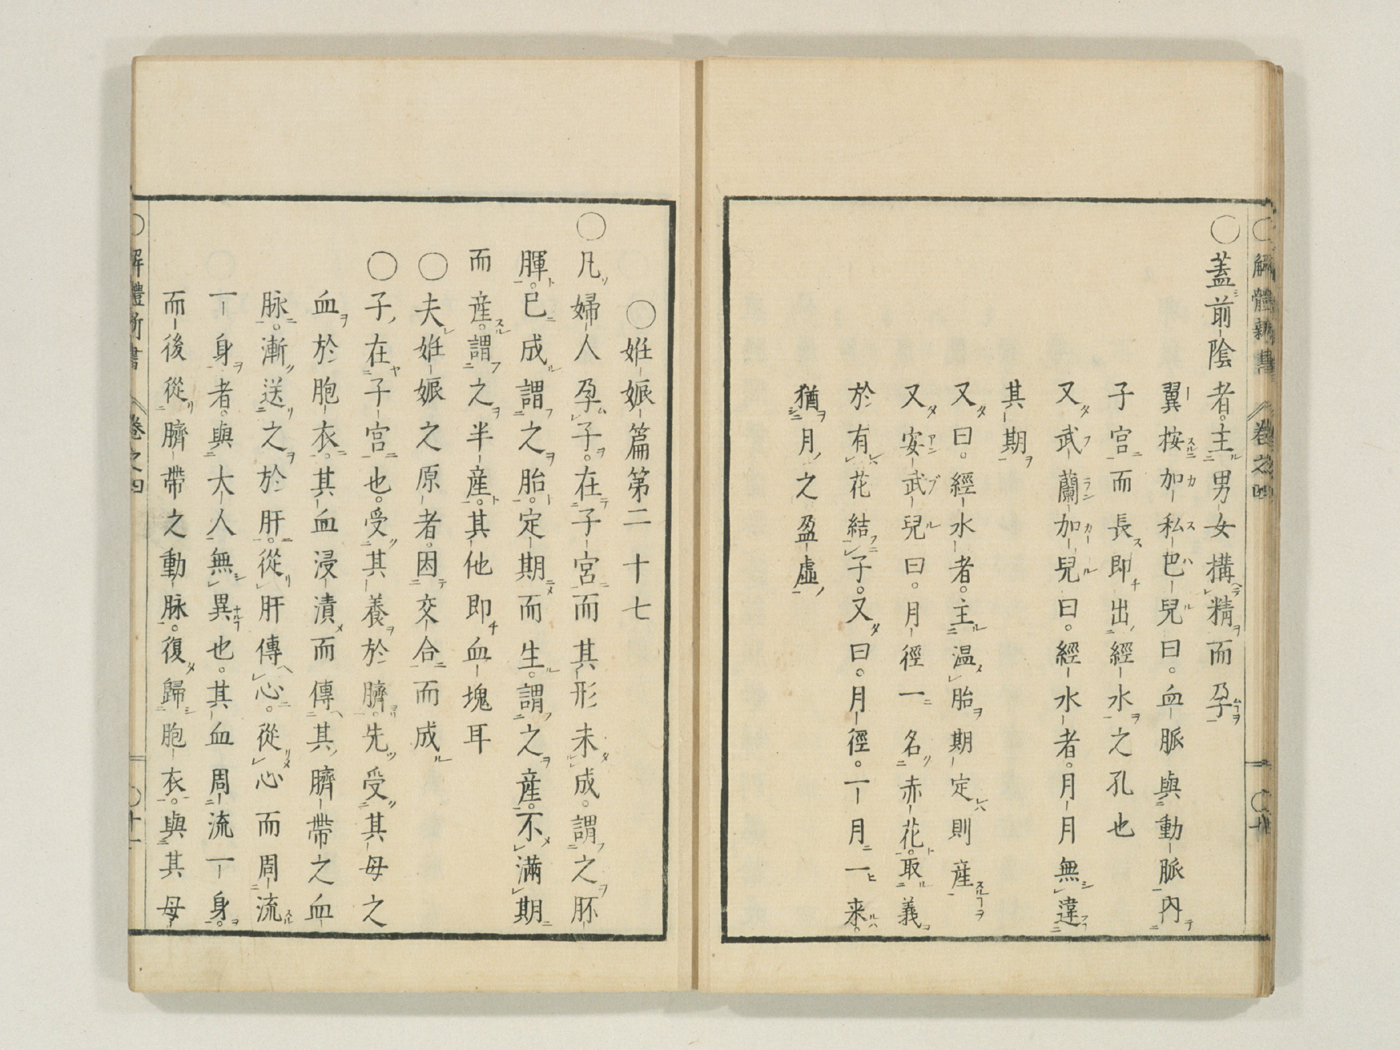 〇解體新書 巻之四
〇蓋前陰者。主男女構精而孕
翼按加私巴兒曰。血脈與動脈内
子宮而長即出經水之孔也
又武蘭加兒曰。經水者。月月無違
其期
又曰。經水者。主温胎。期定則産
又安武兒曰。月徑一名赤花。取義
於有花結子。又曰。月徑。一月一来。
猶月之盈虛
〇姙娠篇第二十七
〇凡婦人孕子。在子宮而其形未成。謂之胚
腪。已成謂之胎。定期而生。謂之産。不滿期
而産。謂之半産。其他即血塊耳
〇夫姙娠之原者。因交合而成
〇子在子宮也。受其養於臍。先受其母之
血於胞衣。其血浸漬而傳其臍帶之血
脉。漸送之於肝。從肝傳心。從心而周流
一身者。與大人無異也。其血周流一身。
而後從臍帶之動脉。復歸胞衣。與其母
〇解體新書 巻之四 〇十一